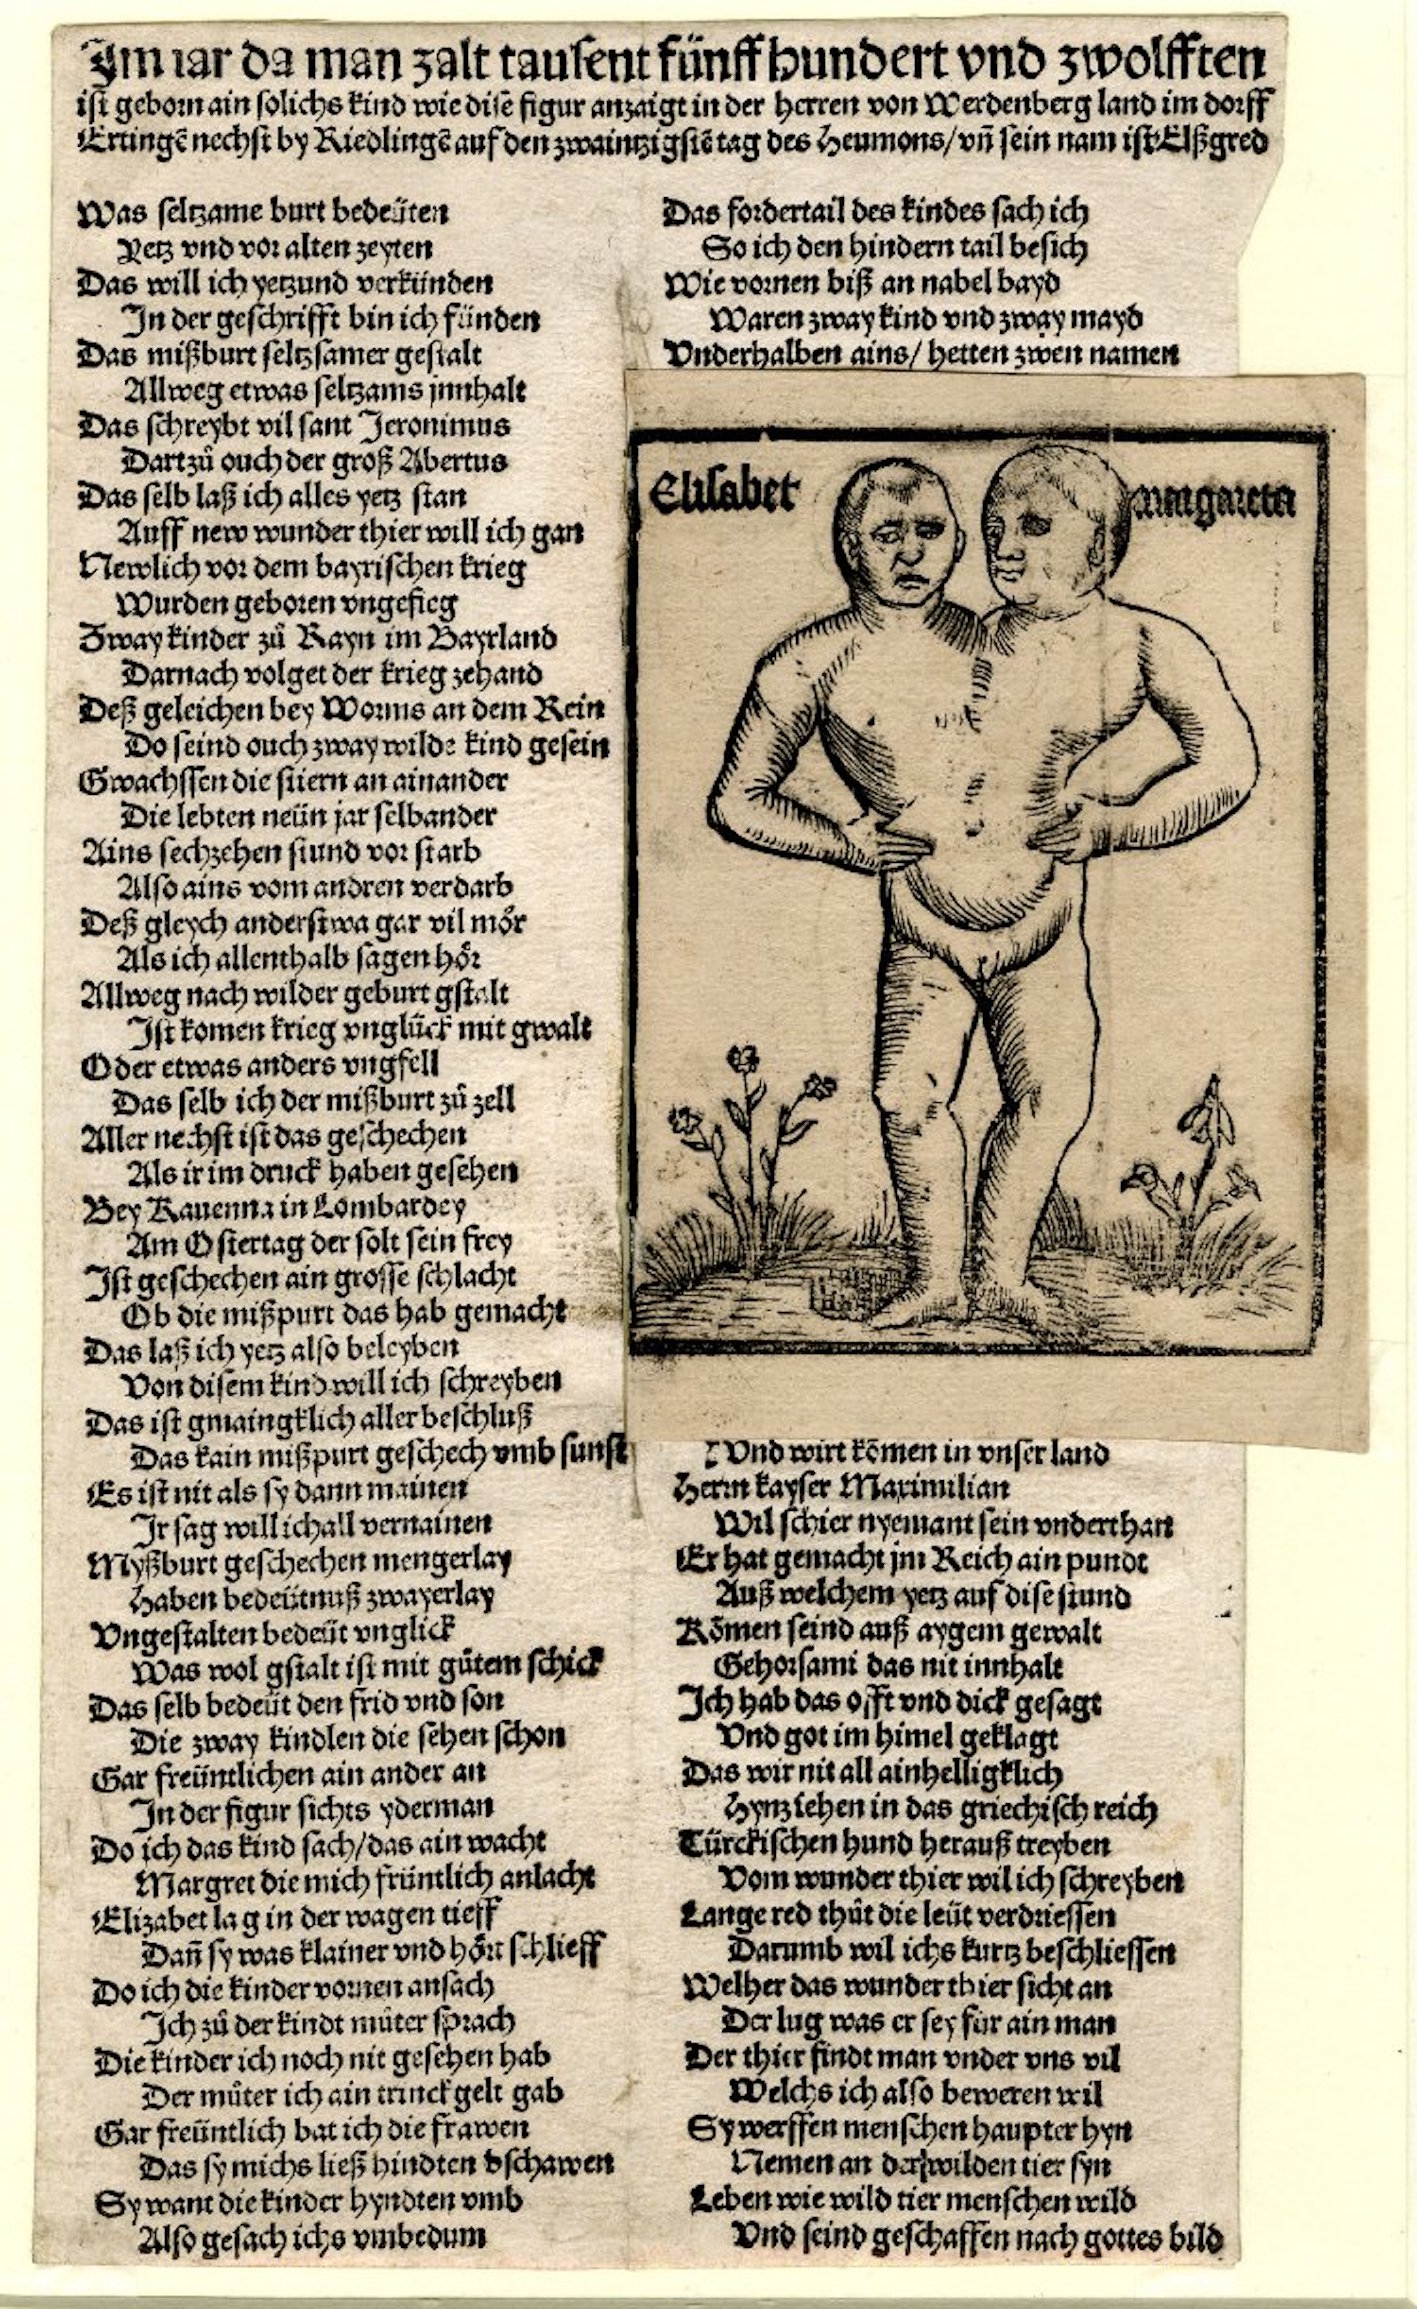 Im iar da man zalt tausent fünffhundert vnd zwolfften
ist geborn ain solichs kind wie dise figur anzaigt in der herren von Werdenberg land im dorff
Ertingē nechst by Riedlingē auf den zwaintzigstē tag des Heumons/ vn̄ sein nam ist Elßgred
Was seltzame burt bedeüten
Yetz vnd vor alten zeyten
Das will ich yetzund verkünden
In der geschrifft bin ich fünden
Das mißburt seltzsamer gestalt
Allweg etwas seltzams jnnhalt
Das schreybt vil sant Jeronimus
Dartzů ouch der groß Abertus
Das selb laß ich alles yetz stan
Auff new wunder thier will ich gan
Newlich vor dem bayrischen krieg
Wurden geboren vngefieg
Zway kinder zů Rayn im Bayrland
Darnach volget der krieg zehand
Deß geleichen bey Worms an dem Rein
Do seind ouch zway wilde kind gesein
Gwachssen die stiern an ainander
Die lebten neün jar selbander
Ains sechzehen stund vor starb
Also ains vom andren verdarb
Deß gleych anderstwa gar vil mör
Als ich allenthalb sagen hör
Allweg nach wilder geburt gstalt
Ist komen krieg vnglück mit gwalt
Oder etwas anders vngfell
Das selb ich der mißburt zů zell
Aller nechst ist das geschechen
Als ir im druck haben gesehen
Bey Rauenna in Lombardey
Am Ostertag der solt sein frey
Ist geschechen ain grosse schlacht
Ob die mißpurt das hab gemacht
Das laß ich yetz also beleyben
Von disem kind will ich schreyben
Das ist gmaingklich aller beschluß
Das kain mißpurt geschech vmb sunst
Es ist nit als sy dann mainen
Ir sag will ich all vernainen
Myßburt geschechen mengerlay
Haben bedeütnuß zwayerlay
Vngestalten bedeüt vnglick
Was wol gstalt ist mit gůtem schick
Das selb bedeüt den frid vnd son
Die zway kindlen die sehen schon
Gar freüntlichen ain ander an
In der figur sichts yderman
Do ich das kind sach/ das ain wacht
Margret die mich früntlich anlacht
Elizabet lag in der wagen tieff
Dan̄ sy was klainer vnd hört schlieff
Do ich die kinder vornen ansach
Ich zů der kindt můter sprach
Die kinder ich noch nit gesehen hab
Der můter ich ain trinckgelt gab
Gar freüntlich bat ich die frawen
Das sy michs ließ hindten bschawen
Sy want die kinder hyndten vmb
Also gesach ichs vmbedum
Das fordertail des kindes sach ich
So ich den hindern tail besich
Wie vornen biß an nabel bayd
Waren zway kind vnd zway mayd
Vnderhalben ains/ hetten zwen namen
Elisabet
margareta
Vnd wirt kōmen in vnser land
Herrn kayser Maximilian
Wil schier nyemant sein vnderthan
Er hat gemacht jm Reich ain pundt
Auß welchem yetz auf dise stund
Kōmen seind auß aygem gewalt
Gehorsami das nit innhalt
Ich hab das offt vnd dick gesagt
Vnd got im himel geklagt
Das wir nit all ainhelligklich
Hynziehen in das griechisch reich
Türckischen hund herauß treyben
Vom wunder thier wil ich schreyben
Lange red thůt die leüt verdriessen
Darumb wil ichs kurtz beschliessen
Welher das wunder thier sicht an
Der lug was er sey für ain man
Der thier findt man vnder vns vil
Welchs ich also beweren wil
Sy werffen menschen haupter hyn
Nemen an der wilden tier syn
Leben wie wild tier menschen wild
Vnd seind geschaffen nach gottes bild